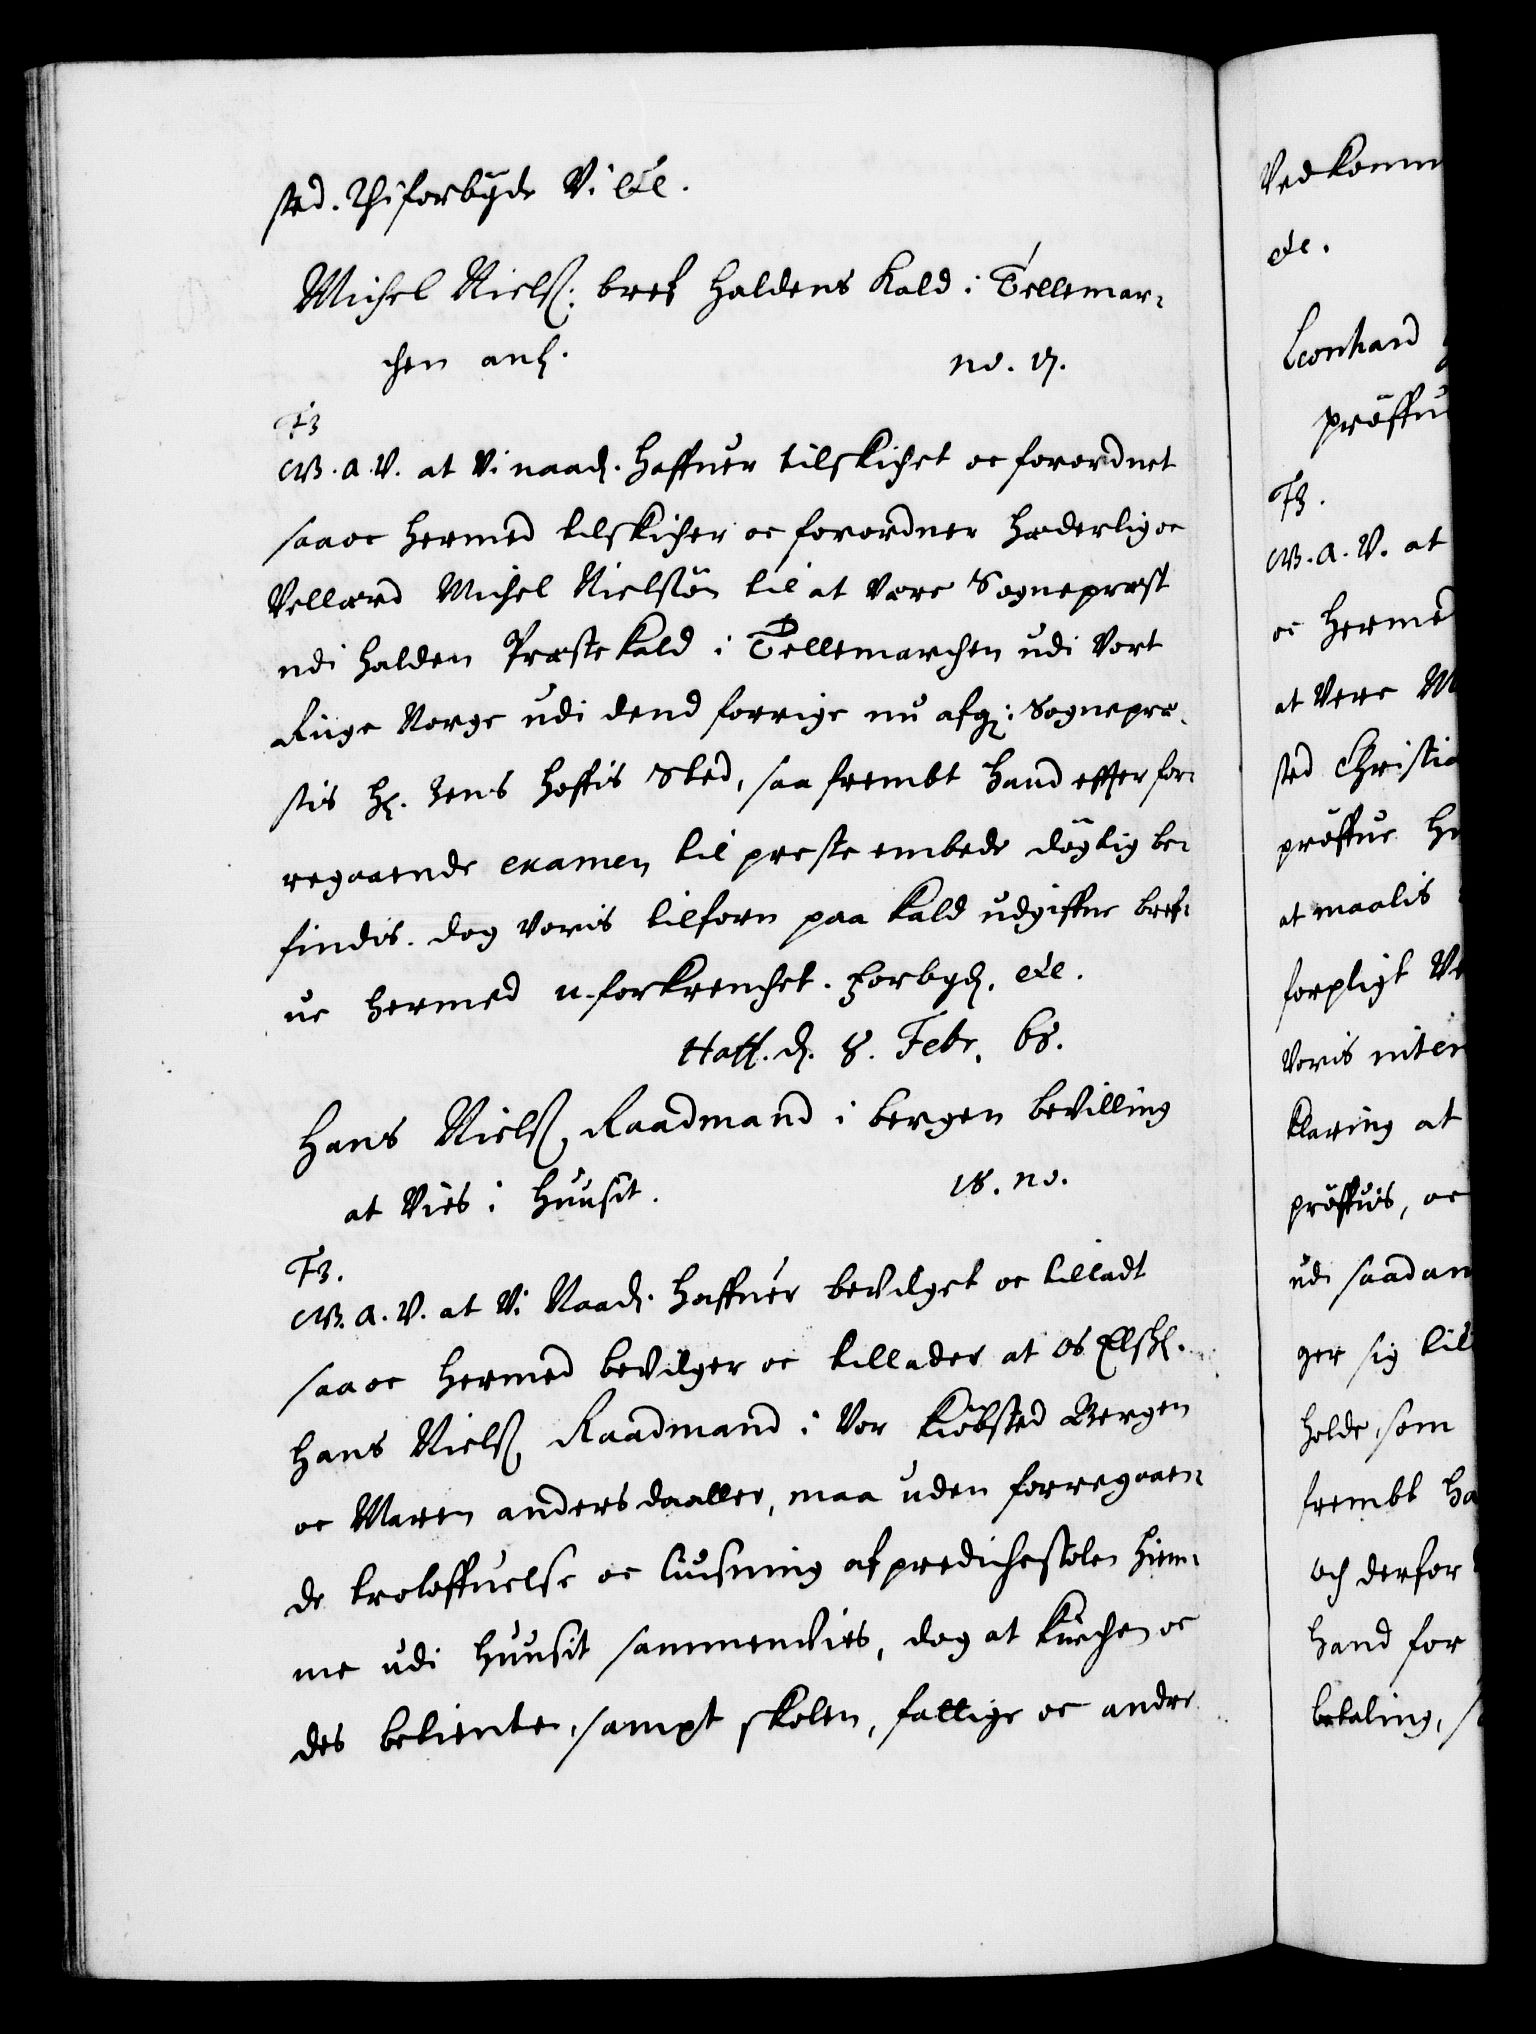 sted. Thi forbyde Vi etc.
Michel Niels: bref Holdens Kald i Tellemar-
chen anl.
no. 17.
F3
G.A.V. at Vi naad. haffuer tilskichet oc forordnet
saa oc hermed tilskicher oc forordner Hæderlig oc
Vellærd Michel Nielsøn til at være Sognepræst
udi Holden Præstekald i Tellemarchen udi Vort
Rige Norge udi dend forrige nu afg: Sognepræ-
stis H. Jens Hoffis Sted, saa frembt hand effter for-
regaaende examen til preste embede dögtig be-
findis. dog voris tilforn paa Kald udgiffne bref-
ue hermed u-forkrenchet. Forbyd. etc.
Haff. d. 8. Febr. 68.
Hans Niels. Raadmand i bergen bevilling
at Vies i Huuset.
18. no.
F3.
G.A.V. at Vi Naad. haffuer bevilget oc tilladt
saa oc hermed bevilger oc tillader at os Elskl.
Hans Niels. Raadmand i Vor Kiöbsted Bergen
oc Maren andersdaatter, maa uden forregaaen-
de troloffuelse oc liusning af predichestolen hiem-
me udi Huuset sammenvies, dog at Kirchen oc
des betiente, sampt skolen, fattige oc andre
Vedkomm
etc.
Leonhard
pröffu
F3.
G.A.V. at
oc hermed
at Vere M
sted Christia
pröffue H
at maalis
forpligt Ve
Voris
klaring at
pröffuis, oc
udi saadan
ger sig til
holde som
frembt ha
och derfor
hand for
betaling, s